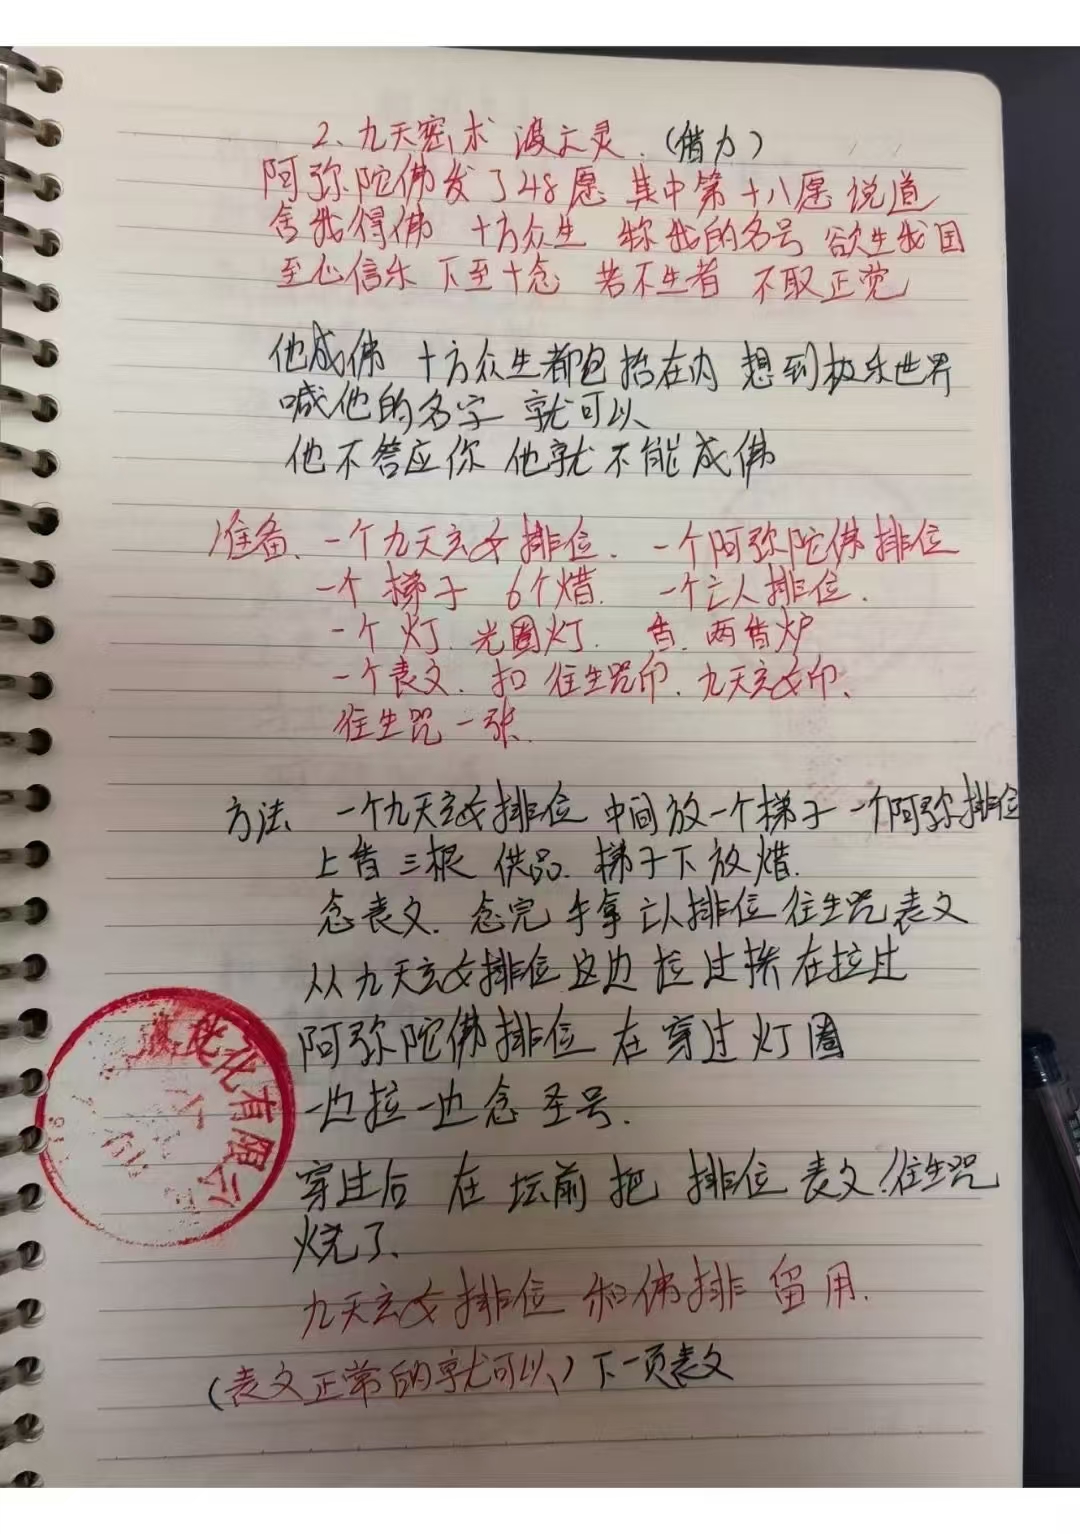 2、九天密术 渡亡灵.(借力)
阿弥陀佛发了48愿 其中第十八愿说道
舍我得佛 十方众生 称我的名号 欲生我国
至心信乐 下至十念 若不生者 不取正觉
他成佛 十方众生都包括在内 想到极乐世界
喊他的名字 就可以
他不答应你 他就不能成佛
准备、一个九天玄女排位、一个阿弥陀佛排位
一个梯子 6个蜡. 一个亡人排位.
一个灯.光圈灯. 香.两香炉
一个表文. 扣往生咒印.九天玄女印、
往生咒一张.
方法、一个九天玄女排位 中间放一个梯子 一个阿弥排位
上香三根 供品. 梯子下放蜡.
念表文. 念完手拿亡人排位 往生咒表文
从九天玄女排位这边拉过来在拉过
阿弥陀佛排位 在穿过灯圈
一边拉一边念圣号.
穿过后 在坛前把 排位 表文.往生咒
烧了.
九天玄女排位 和佛排 留用.
(表文正常的就可以)下一页表文
化有限公